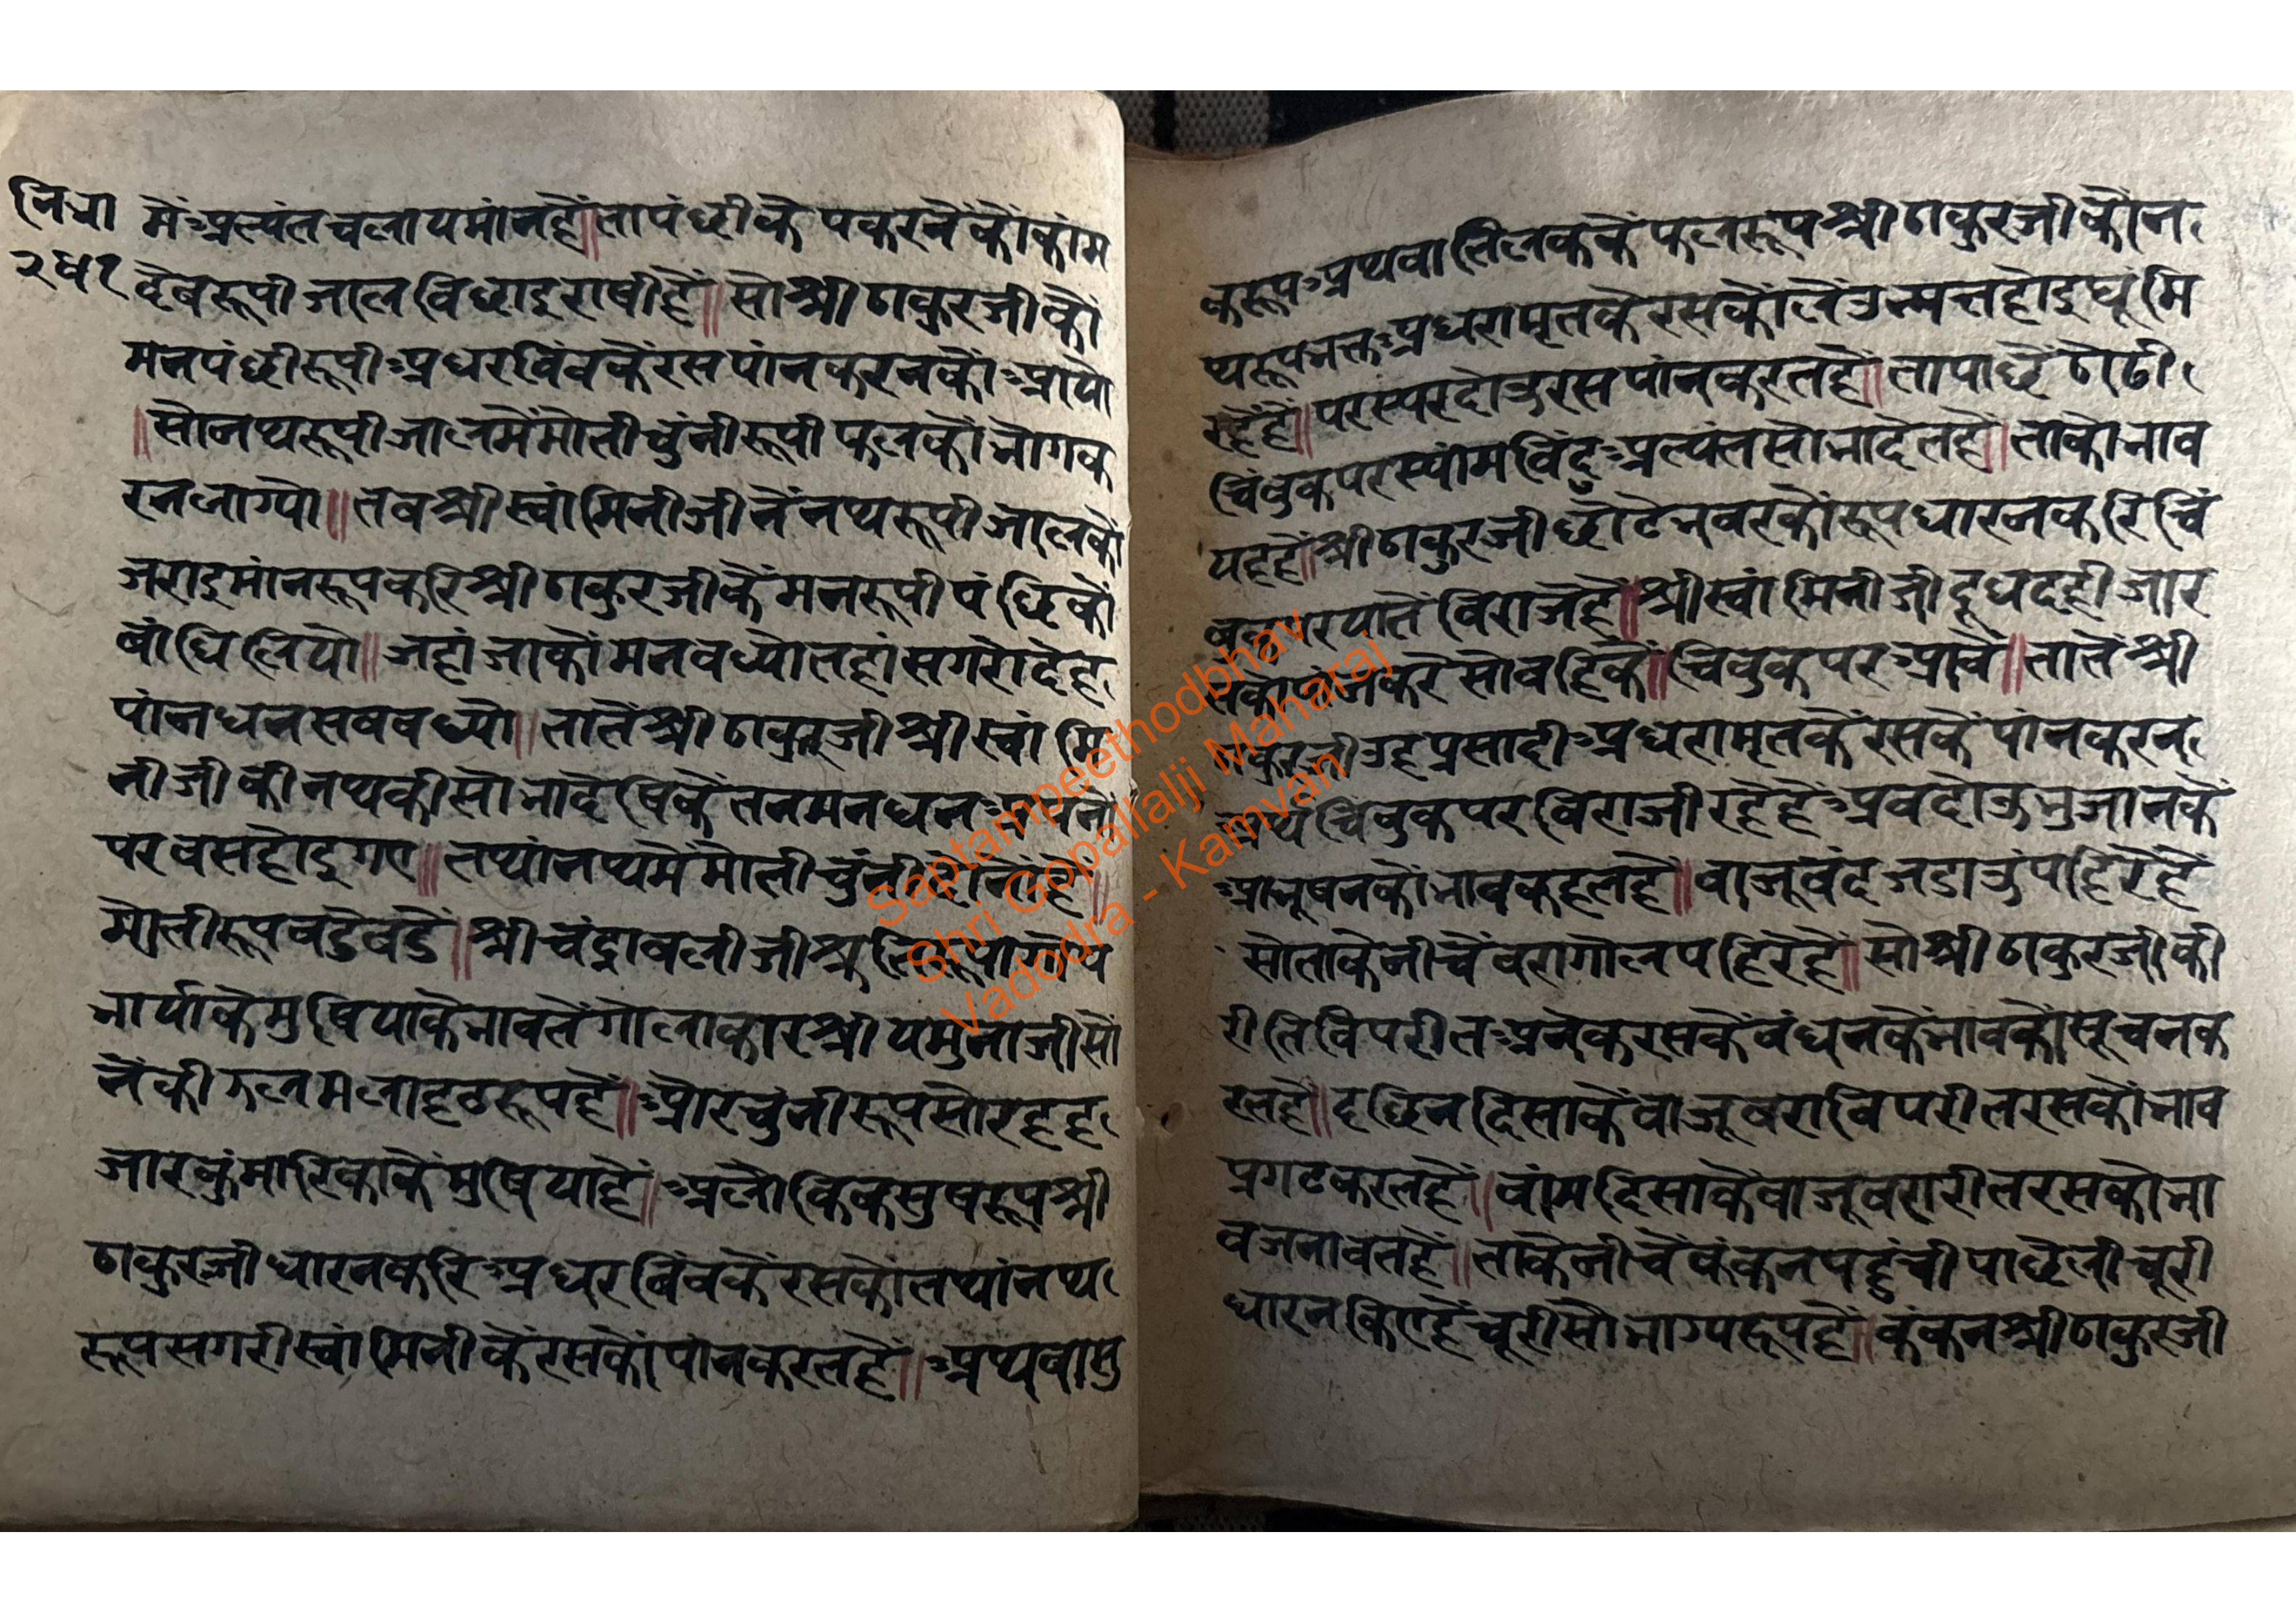 नि भा
२५१
में अत्यंत चलायमांन है॥ता पंछी के पकरनें कों कांम
देव रूपी जाल विछाइ राषी हैं॥सो श्री ठाकुरजी कों
मन पंछी रूपी अधर विंव कें रस पांन करन कों आयो
॥सो नथ रूपी जाल में मोती चुंनी रूपी फल कों भोग क
रन लाग्यो॥तव श्री स्वांमिनीजी नें नथ रूपी जाल कों
जराइ मांन रूप करि श्री ठाकुरजी कें मन रूपी पंछि कों
वांधि लियो॥जहां जाकों मन वध्यो तहां सगरो देह
पांन धन सव वध्यो॥तातें श्री ठाकुरजी श्री स्वांमि
नीजी की नथ की सोभा देषि कें तन मन धन
परवस होइ गए॥तथां नथ में मोती चुंनी
मोती रूप वडे वडे॥श्री चंद्रावलीजी श्रुति रूपा
भार्या के मुषिया के भाव तें गोलाकार श्री यमुनाजी सो
नें की गल मलाहृठ रूप हैं॥और चुंनी रूप सोरह ह
जार कुंमारिका कें मुषिया हैं॥अलौकिक मुष रूप श्री
ठाकुरजी धारन करि अधर विंव कें रस कों तथां नथ
रूप सगरी स्वांमिनी कें रस कों पांन करत हैं॥अथवा मु
क रूप अथवा तिलक कें फल रूप श्री ठाकुरजी कों न
थ रूप भक्त अधरामृत कें रस कों लें उन्मत्त होइ घूंमि
रहें हैं॥परस्पर दोउ रस पांन करत हैं॥ता पाछें ठोढी
चिंवुक पर स्यांम विंदु अत्यंत सोभा देत हैं॥ताको भाव
यह हैं॥श्री ठाकुरजी छोटे भवर कों रूप धारन करि चिं
वुक पर यातें विराजे हैं॥श्री स्वांमिनीजी दूध दही जार
सो वहि कें॥चिवुक पर आवें॥तातें श्री
ठाकुरजी उह प्रसादी अधरामृत कें रस कें पांन करन
अर्थ चिवुक पर विराजी रहे हैं अव दोउ भुजान कें
आभूषन कों भाव कहत हैं॥वाजूवंद जडाउ पहिरे हैं
सो ताके नीचें वरा गोल पहिरे हैं॥सो श्री ठाकुरजी की
रीति विपरीत अनेक रस कें वंधन कें भाव कों सूचन क
रत हैं॥दछिन दिसा कें वाजू वरा विपरीत रस कों भाव
प्रगट करत हैं॥वांम दिसा कें वाजू वरा रीत रस कों भा
व जनावत हैं॥ताके नीचें कंकन पहुंची पाछेली चूरी
धारन किए हैं चूरी सौभाग्य रूप हैं॥कंकन श्री ठाकुरजी
Saptampeethodbhav
Shri Gopallalji Maharaj
Vadodra - Kamvan